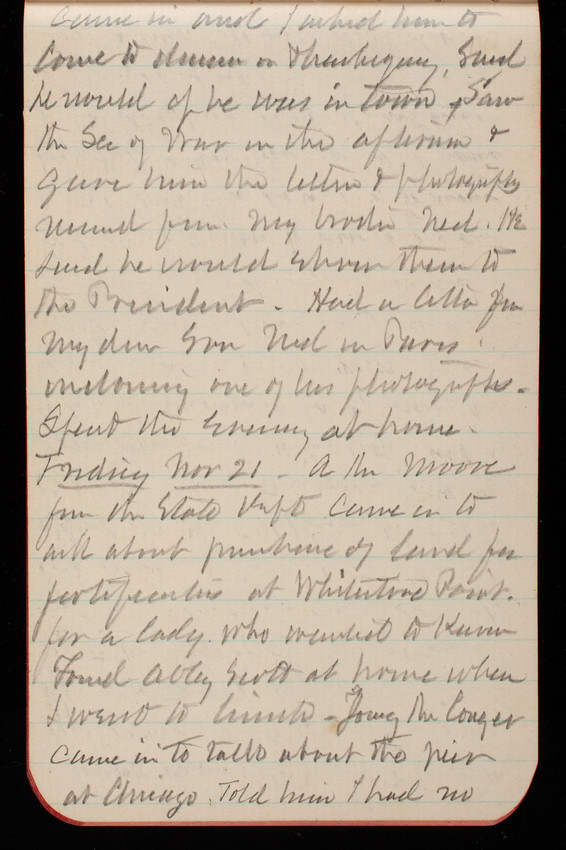 came in and I asked him to
come to dinner on Thanksgiving, Said
he would if he was in town, Saw
the Sec of War in the afternoon &
gave him the letter & photographs
received from my brother Ned. He
said he would show them to
the President. Had a letter from
my dear Son Ned in Paris.
inclosing one of his photographs.
Spent the Evening at home.
Friday Nov 21. A Mr Moore
from the State Dept came in to
ask about purchase of land for
fortifications at Whitestone Point.
for a lady who wanted to know
Found Abby Scott at home when
I went to lunch - Young Mr
came in to talk about the pier
at Chicago. Told him I had no